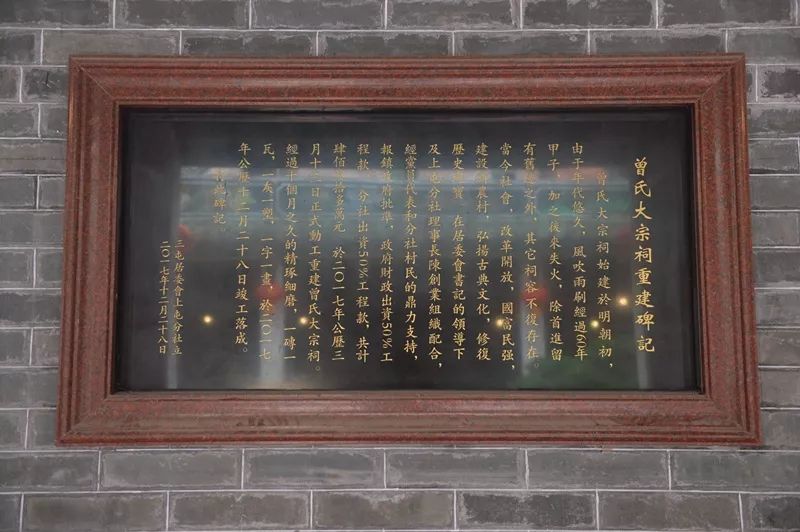 曾氏大宗祠重建碑記
曾氏大宗祠始建於明朝初，
由于年代悠久，風吹雨刷經過60年
甲子，加之後來失火，除首進留
有舊之外，其它祠容不復存在。
當今社會，改革開放，國富民强，
建設新農村，弘揚古典文化，修復
歷史實，在居委會書記的領導下
及上屯分社理事長陳創業組織配合，
經黨員代表和分社村民的鼎力支持，
報鎮政府批準，政府財政出資50%工
程款，分社出資50%工程款，共計
肆佰拾多萬元，於二〇一七年公曆三
月十二日正式動工重建曾氏大宗祠。
經過十個月之久的精琢細磨，一磚一
瓦，一灰一塑，一字一畫，於二〇一七
年公曆十二月二十八日竣工落成。
特此碑記。
三屯居委會上屯分社立
二〇一七年十二月二十八日